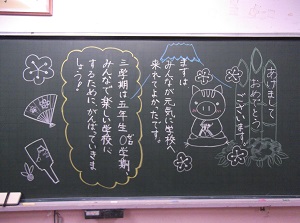 あけまして
おめでとう
ございます。
まずは
みんなが元気に学校へ
来れてよかったです。
三学期は五年生0学期
ゼロ
みんなで楽しい学校に
するために、がんばっていきま
しょう!